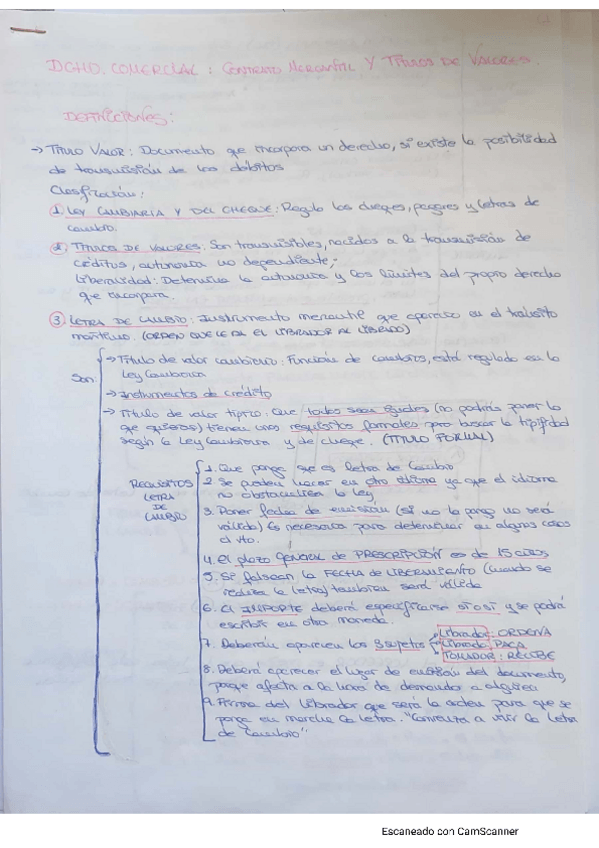 DCHO. COMERCIAL : CONTRATO MERCANTIL Y TÍTULOS DE VALORES.
DEFINICIONES:
→ TÍTULO VALOR: Documento que incorpora un derecho, si existe la posibilidad
de transmisión de los débitos
Clasificación:
1. LEY CAMBIARIA Y DEL CHEQUE: Regula los cheques, pagares y letras de
cambio.
2. TÍTULOS DE VALORES: Son transmisibles, nacidos a la transmisión de
créditos, autonomía no dependiente;
liberalidad: Determina la autonomía y los límites del propio derecho
que incorpora.
3. LETRA DE CAMBIO: Instrumento mercantil que aparece en el tránsito
marítimo. (ORDEN QUE LE DA EL LIBRADOR AL LIBRADO)
Son:
→ Título de valor cambiario: Función de cambios, está regulado en la
Ley Cambiaria
→ Instrumentos de crédito
→ Título de valor típico. Que todos sean iguales (no podrás poner lo
que quieras) tienen unos requisitos formales para buscar la tipicidad
según la Ley Cambiaria y de cheque. (TÍTULO FORMAL)
REQUISITOS LETRA DE CAMBIO
1. Que ponga que es letra de Cambio
2 Se pueden hacer en otro idioma ya que el idioma
no obstaculiza la ley
3. Poner fecha de emisión (si no la pongo no será
válido) Es necesaria para determinar en algunos casos
el vto.
4. El plazo GENERAL de PRESCRIPCIÓN es de 15 años
5. Si falsean la FECHA de LIBRAMIENTO (cuando se
realiza la letra) también será válida
6. El IMPORTE deberá especificarse si o si y se podrá
escribir en otra moneda.
7. Deberán aparecer los 3 sujetos
Librador: ORDENA
Librado: PAGA
TOMADOR: RECIBE
8. Deberá aparecer el lugar de emisión del documento,
porque afecta a la hora de demandar a alguien
9. Firma del librador que será la orden para que se
ponga en marcha la letra. "Comienza a vivir la letra
de Cambio"
Escaneado con CamScanner